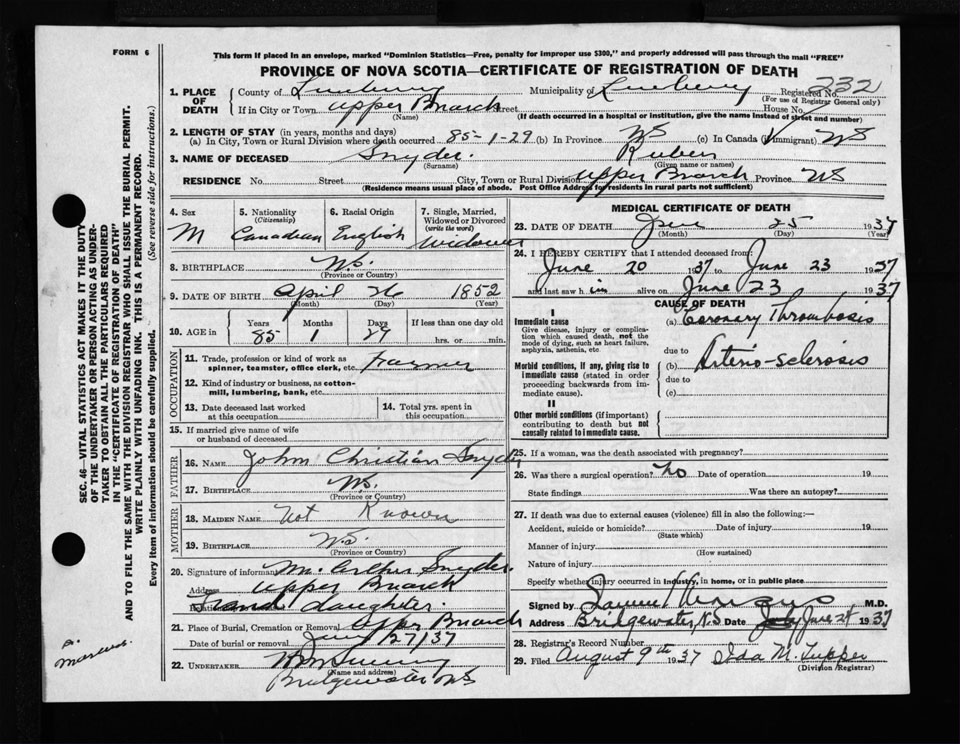 FORM 6
This form if placed in an envelope, marked "Dominion Statistics—Free, penalty for improper use $300," and properly addressed will pass through the mail "FREE"
PROVINCE OF NOVA SCOTIA—CERTIFICATE OF REGISTRATION OF DEATH
SEC. 46—VITAL STATISTICS ACT MAKES IT THE DUTY
OF THE UNDERTAKER OR PERSON ACTING AS UNDER-
TAKER TO OBTAIN ALL THE PARTICULARS REQUIRED
IN THE "CERTIFICATE OF REGISTRATION OF DEATH"
AND TO FILE THE SAME WITH THE DIVISION REGISTRAR WHO SHALL ISSUE THE BURIAL PERMIT.
WRITE PLAINLY WITH UNFADING INK. THIS IS A PERMANENT RECORD.
Every item of information should be carefully supplied. (See reverse side for instructions.)
1. PLACE OF DEATH
County of Lunenburg Municipality of Lunenburg Registered No. 232
(For use of Registrar General only)
If in City or Town Upper Branch Street House No.
(Name) (If death occurred in a hospital or institution, give the name instead of street and number)
2. LENGTH OF STAY (in years, months and days)
(a) In City, Town or Rural Division where death occurred 85-1-29 (b) In Province NS (c) In Canada (if immigrant) NS
3. NAME OF DECEASED Snyder Ruben
(Surname) (Given name or names)
RESIDENCE No. Street City, Town or Rural Division Upper Branch Province NS
(Residence means usual place of abode. Post Office Address for residents in rural parts not sufficient)
4. Sex M
5. Nationality (Citizenship) Canadian
6. Racial Origin English
7. Single, Married, Widowed or Divorced (write the word) Widower
8. BIRTHPLACE N.S.
(Province or Country)
9. DATE OF BIRTH April 26 1852
(Month) (Day) (Year)
10. AGE in Years 85 Months 1 Days 29 If less than one day old hrs. or min.
OCCUPATION
11. Trade, profession or kind of work as spinner, teamster, office clerk, etc. Farmer
12. Kind of industry or business, as cotton-mill, lumbering, bank, etc.
13. Date deceased last worked at this occupation
14. Total yrs. spent in this occupation
15. If married give name of wife or husband of deceased
FATHER
16. NAME John Christian Snyder
17. BIRTHPLACE N.S.
(Province or Country)
MOTHER
18. MAIDEN NAME Not Known
19. BIRTHPLACE N.S.
(Province or Country)
20. Signature of informant Mrs. Arthur Snyder
Address Upper Branch
Relation Grand daughter
21. Place of Burial, Cremation or Removal Upper Branch
Date of burial or removal June 27/37
22. UNDERTAKER
(Name and address)
Bridgewater NS
MEDICAL CERTIFICATE OF DEATH
23. DATE OF DEATH June 25 1937
(Month) (Day) (Year)
24. I HEREBY CERTIFY that I attended deceased from:
June 20 1937 to June 23 1937
and last saw him alive on June 23 1937
CAUSE OF DEATH
I
Immediate cause
Give disease, injury or complication which caused death, not the mode of dying, such as heart failure, asphyxia, asthenia, etc.
(a) Coronary Thrombosis
due to
Morbid conditions, if any, giving rise to immediate cause (stated in order proceeding backwards from immediate cause).
(b) Arterio-sclerosis
due to
(c)
II
Other morbid conditions (if important) contributing to death but not causally related to immediate cause.
25. If a woman, was the death associated with pregnancy?
26. Was there a surgical operation? No Date of operation 19
State findings Was there an autopsy?
27. If death was due to external causes (violence) fill in also the following:—
Accident, suicide or homicide? Date of injury 19
(State which)
Manner of injury
(How sustained)
Nature of injury
Specify whether injury occurred in industry, in home, or in public place
Signed by Samuel M.D.
Address Bridgewater, N.S Date June 24 1937
28. Registrar's Record Number
29. Filed August 9th 1937 Ida M. Tupper
(Division Registrar)